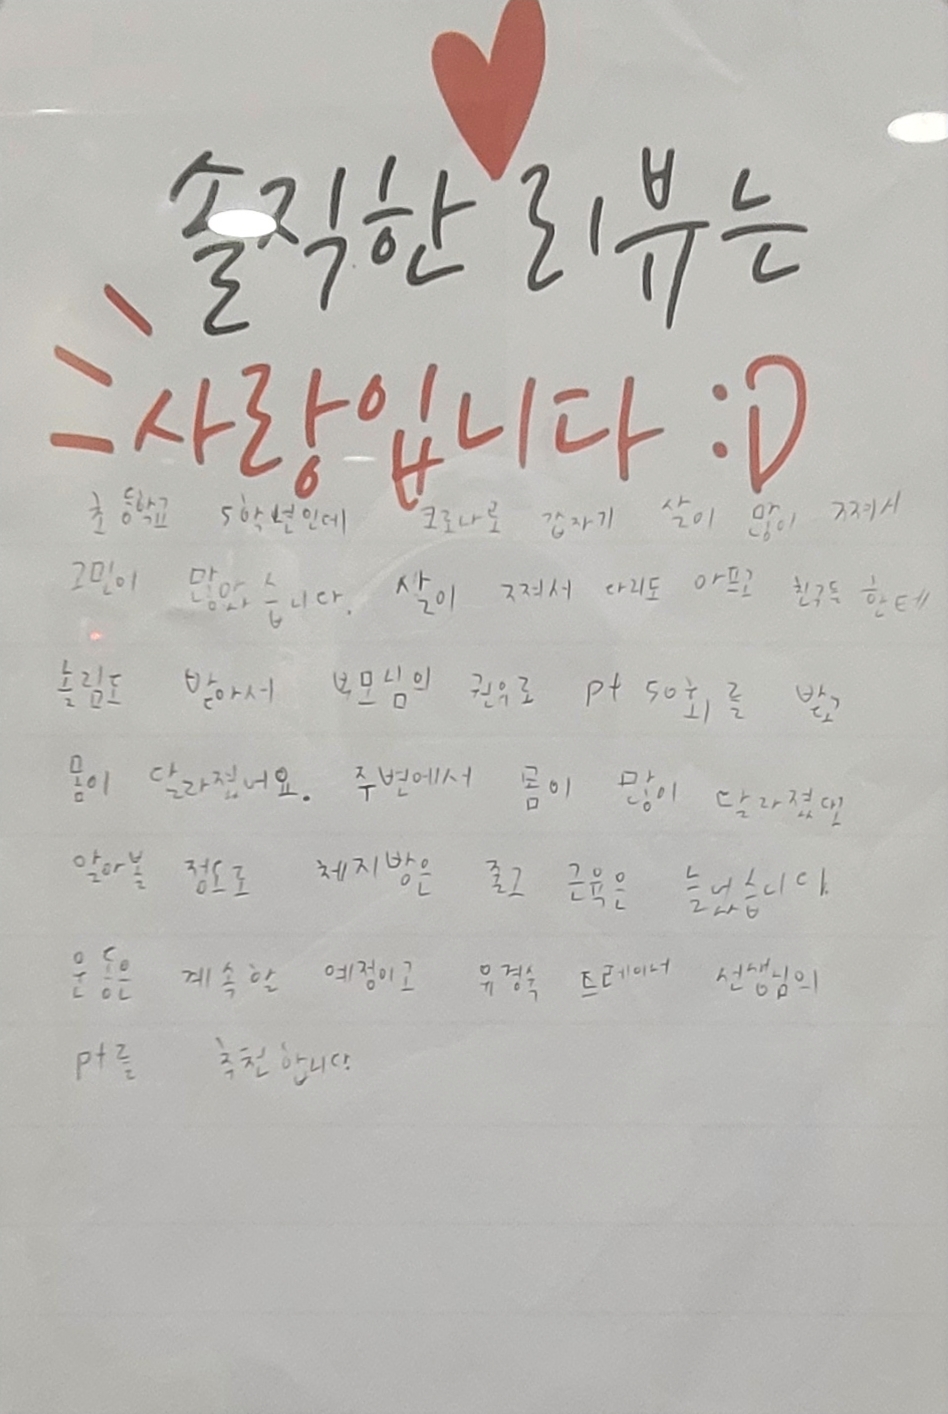 솔직한 리뷰는
사랑입니다 :D
초등학교 5학년인데 코로나로 갑자기 살이 많이 쪄서
고민이 많았습니다. 살이 쪄서 다리도 아프고 친구들한테
놀림도 받아서 부모님의 권유로 pt 50회를 받고
몸이 달라졌어요. 주변에서 몸이 많이 달라졌다고
알아볼 정도로 체지방은 줄고 근육은 늘었습니다
운동은 계속 할 예정이고 유경숙 트레이너 선생님의
pt를 추천합니다